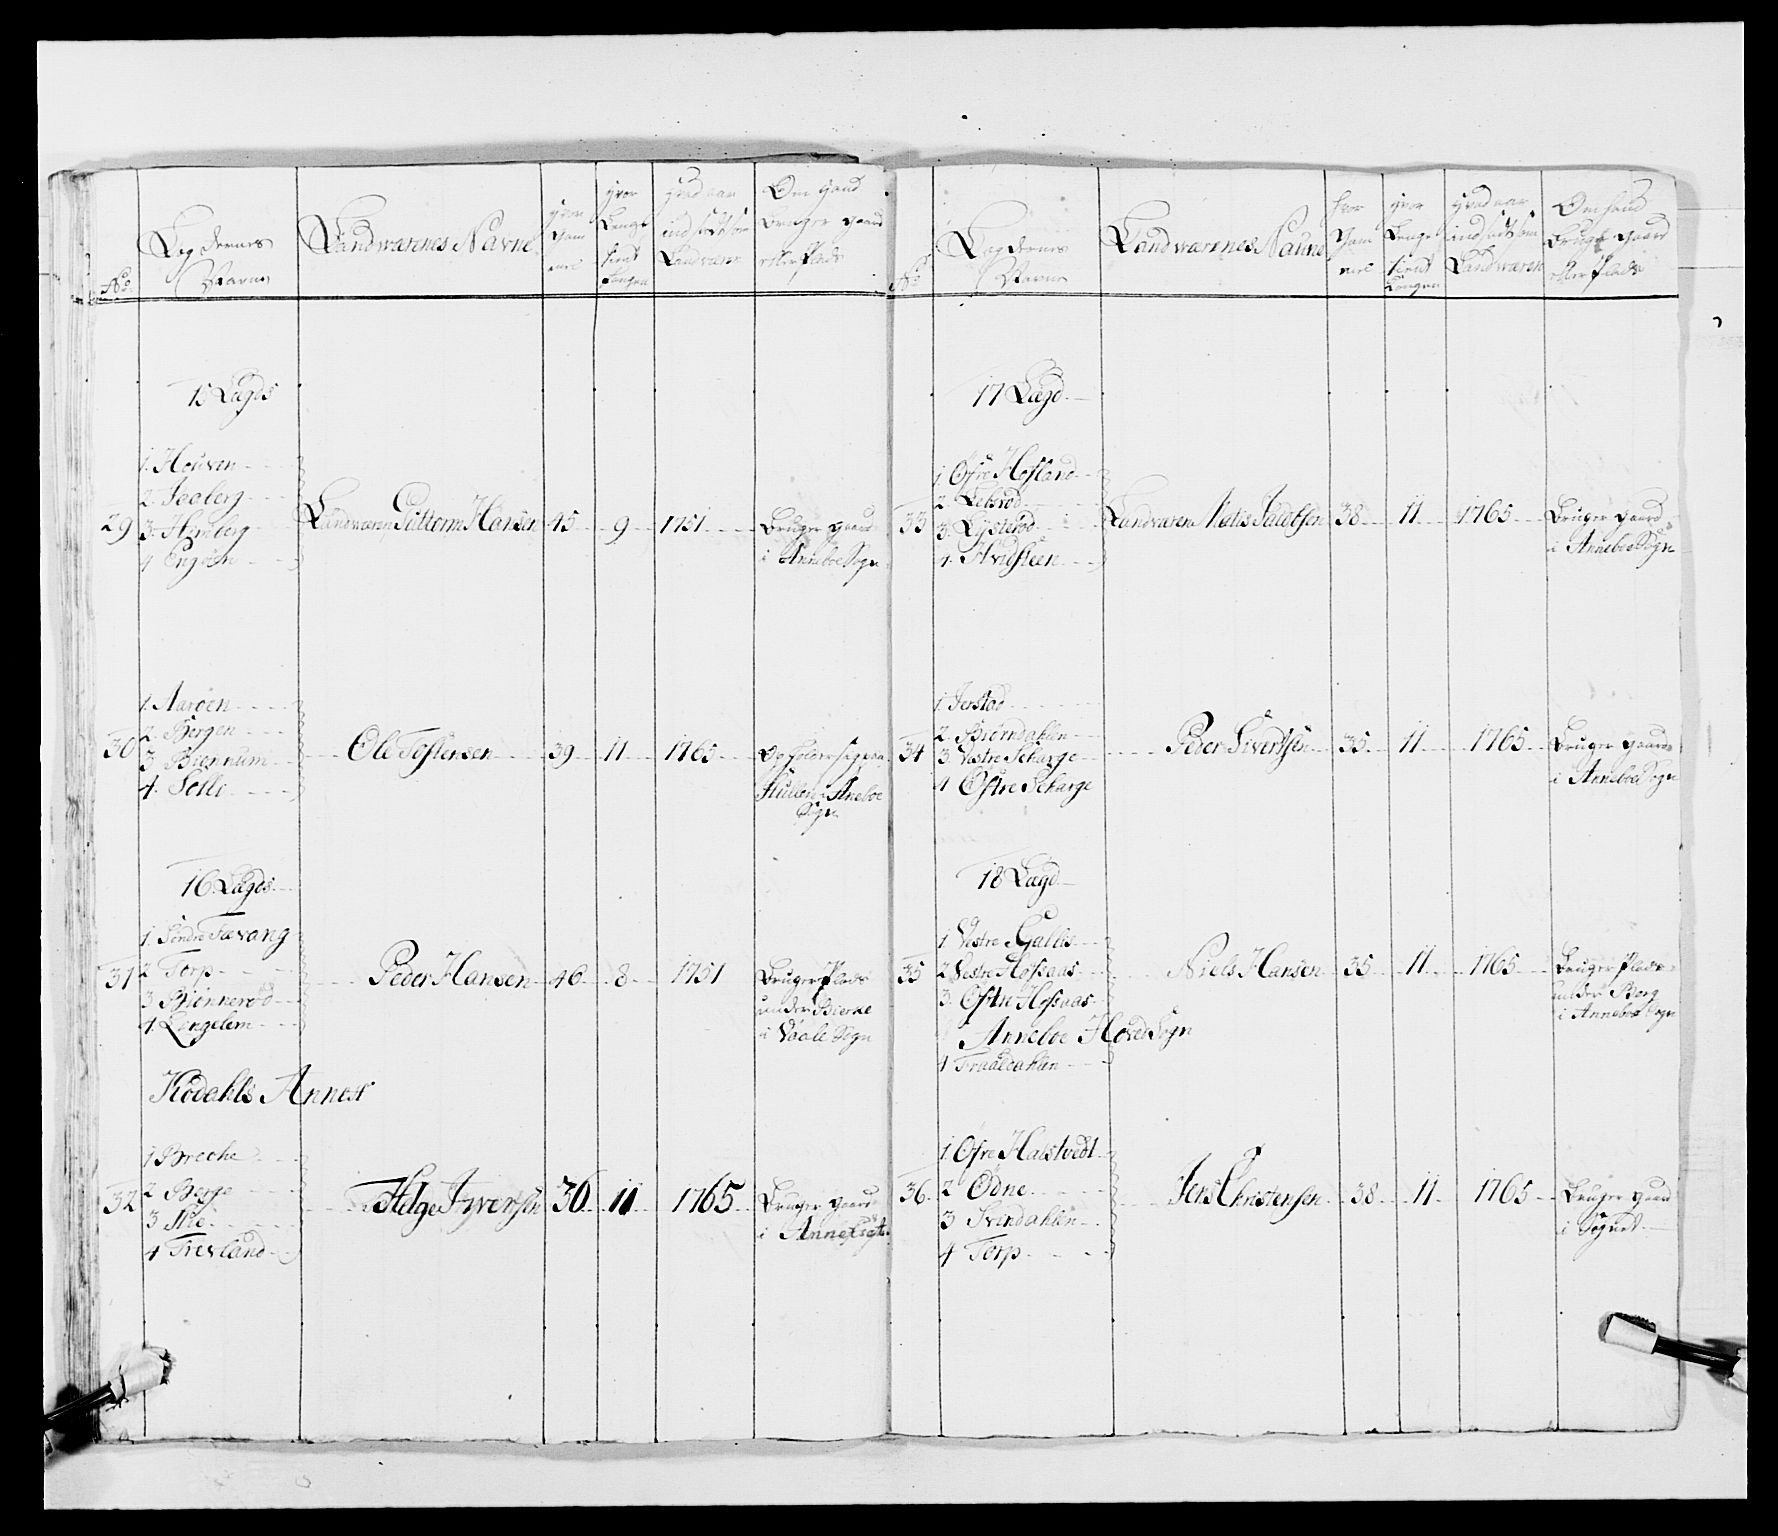 No.
Lægdernes Navne
Landværnes Navne
hvor gam̄el
hvor længe tient Kongen
hvad aar indsadt som Landværn
Om hand bruger gaard eller Plads
15 Lægds
29
1. Houven
2. Saaberg
3. Himberg
4 Engøen
Landværn Guttorm Hansen 45 9 1751
Bruger gaard
i Anneboe Sogn
30
1. Aaröen
2. Bergen
3 Biennum
4. Solli
Ole Tostensen 39 11 1765
Opholder sig paa
Hullen i Aneboe
Sogn
16 Lægds
31
1. Söndre Fævang
2 Torp
3 Biönneröd
4. Lengelem
Peder Hansen 46 8 1751
Bruger Plads
under Bierke
i Vaale Sogn
Kodahls Annex
32
1 Breche
2 Berge
3 Skie
4 Trevland
Helge Iversen 36 11 1765
Bruger gaard
i Annexet
No.
Lægdernes Navne
Landværnes Naune
hvor gam̄el
hvor længe tient Kongen
hvad aar indsadt som Landværn
Om hand brugt gaard eller Plads
17 Lægd
33
1 Öfre Hofland
2. Lebsrod
3. Lysterod
4. Hvidsteen
Landværn Matis Jacobsen 38 11 1765
Bruger gaard
i Anneboe Sogn
34
1. Jerstad
2. Biörndahlen
3. Vestre Schorge
4 Östre Schorge
Peder Sivertsen 35 11 1765
Bruger gaard
i Anneboe Sogn
18 Lægd
35
1. Vestre Gallis
2 Vestre Hofsaas
3. Östre Hofsaas
Anneboe Hoved Sogn
4 Traaldahlen
Niels Hansen 35 11 1765
Bruger Plads
under Berg
i Anneboe Sogn
36
1. Öfre Halstvedt
2 Ödne
3 Svindahlen
4 Torp
Jens Christensen 38 11 1765
Bruger gaard
i Sognet